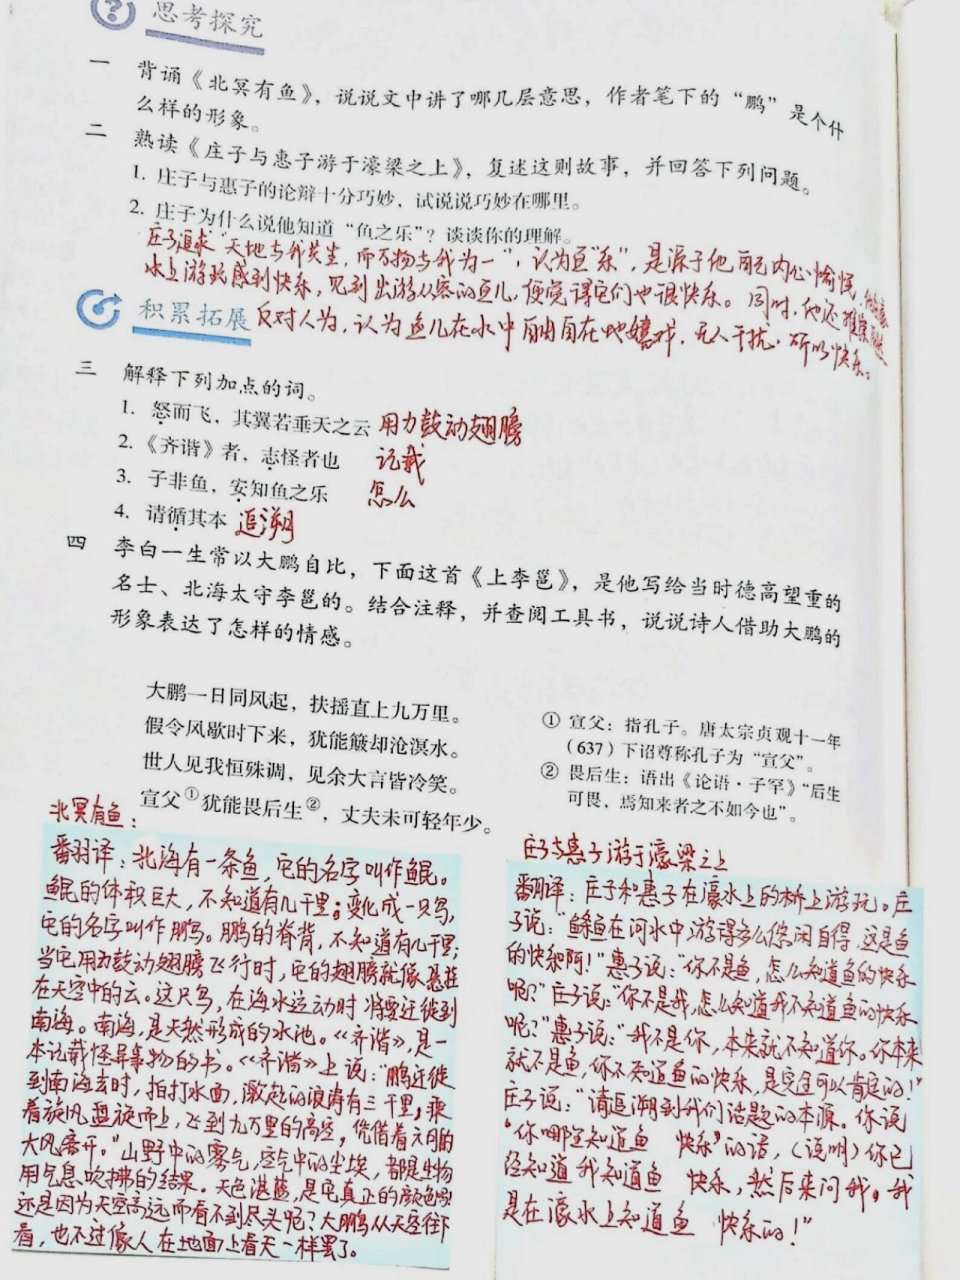 思考探究
一 背诵《北冥有鱼》，说说文中讲了哪几层意思，作者笔下的“鹏”是个什
么样的形象。
二 熟读《庄子与惠子游于濠梁之上》，复述这则故事，并回答下列问题。
1. 庄子与惠子的论辩十分巧妙，试说说巧妙在哪里。
2. 庄子为什么说他知道“鱼之乐”？谈谈你的理解。
庄子追求“天地与我共生，而万物与我为一”，认为鱼“乐”，是源于他自己内心愉悦，
水上游玩感到快乐，见到出游从容的鱼儿，便觉得它们也很快乐。同时，他还
积累拓展
反对人为，认为鱼儿在水中自由自在地嬉戏，无人干扰，所以快乐。
三 解释下列加点的词。
1. 怒而飞，其翼若垂天之云 用力鼓动翅膀
2. 《齐谐》者，志怪者也 记载
3. 子非鱼，安知鱼之乐 怎么
4. 请循其本 追溯
四 李白一生常以大鹏自比，下面这首《上李邕》，是他写给当时德高望重的
名士、北海太守李邕的。结合注释，并查阅工具书，说说诗人借助大鹏的
形象表达了怎样的情感。
大鹏一日同风起，扶摇直上九万里。
假令风歇时下来，犹能簸却沧溟水。
世人见我恒殊调，见余大言皆冷笑。
宣父①犹能畏后生②，丈夫未可轻年少。
① 宣父：指孔子。唐太宗贞观十一年
（637）下诏尊称孔子为“宣父”。
② 畏后生：语出《论语·子罕》“后生
可畏，焉知来者之不如今也”。
北冥有鱼：
翻译：北海有一条鱼，它的名字叫作鲲。
鲲的体积巨大，不知道有几千里；变化成一只鸟，
它的名字叫作鹏。鹏的脊背，不知道有几千里；
当它用力鼓动翅膀飞行时，它的翅膀就像悬挂
在天空中的云。这只鸟，在海水运动时将要迁徙到
南海。南海，是天然形成的水池。《齐谐》，是一
本记载怪异事物的书。《齐谐》上说：“鹏迁徙
到南海去时，拍打水面，激起的浪涛有三千里，乘
着旋风盘旋而上，飞到九万里的高空，凭借着六月的
大风离开。”山野中的雾气，空气中的尘埃，都是生物
用气息吹拂的结果。天色湛蓝，是它真正的颜色吗？
还是因为天空高远而看不到尽头呢？大鹏从天空往下
看，也不过像人在地面上看天一样罢了。
庄子与惠子游于濠梁之上
翻译：庄子和惠子在濠水上的桥上游玩。庄
子说：“鲦鱼在河水中游得多么悠闲自得，这是鱼
的快乐啊！”惠子说：“你不是鱼，怎么知道鱼的快乐
呢？”庄子说：“你不是我，怎么知道我不知道鱼的快乐
呢？”惠子说：“我不是你，本来就不知道你。你本来
就不是鱼，你不知道鱼的快乐，是完全可以肯定的！”
庄子说：“请追溯到我们话题的本源。你说
‘你哪里知道鱼 快乐’的话，（说明）你已
经知道我知道鱼 快乐，然后来问我。我
是在濠水上知道鱼 快乐的！”